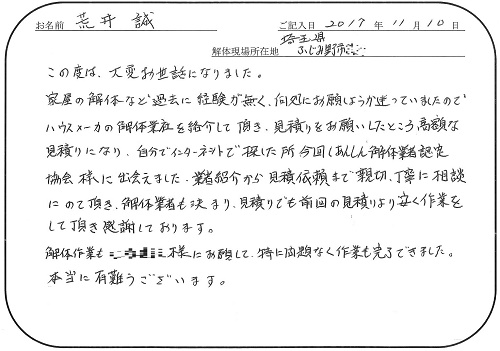 お名前 荒井 誠 ご記入日 2017 年 11 月 10 日
解体現場所在地 埼玉県
ふじみ野市
この度は、大変お世話になりました。
家屋の解体など過去に経験が無く、何処にお願しようか迷っていましたので
ハウスメーカの解体業社を紹介して頂き、見積りをお願いしたところ高額な
見積りになり、自分でインターネットで探した所今回しあんしん解体業者認定
協会様に出会えました。業者紹介から見積依頼まで親切、丁寧に相談
にのて頂き、解体業者も決まり、見積りでも前回の見積りより安く作業を
して頂き感謝しております。
解体作業も 様にお願して、特に問題なく作業も完了できました。
本当に有難うございます。